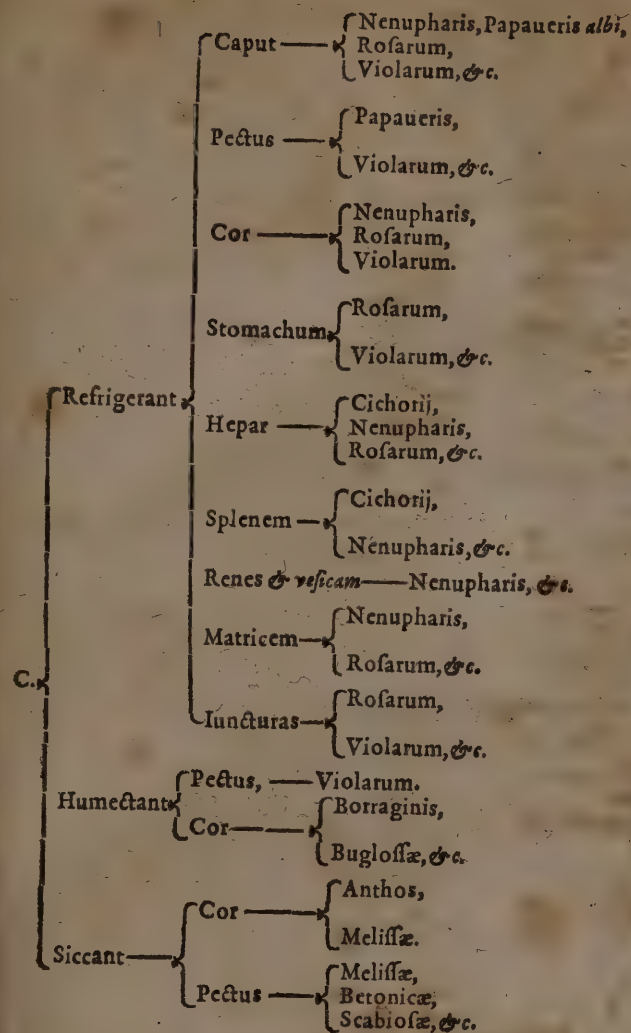 Caput Nenupharis, Papaueris albi,
Roſarum,
Violarum, &c.
Pectus Papaueris,
Violarum, &c.
Cor Nenupharis,
Roſarum,
Violarum.
Stomachum Roſarum,
Violarum, &c.
Refrigerant
Hepar Cichorij,
Nenupharis,
Roſarum, &c.
Splenem Cichorij,
Nenupharis, &c.
Renes & veſicam Nenupharis, &c.
Matricem Nenupharis,
Roſarum, &c.
C.
Iuncturas Roſarum,
Violarum, &c.
Humectant Pectus, Violarum.
Cor Borraginis,
Bugloſſæ, &c.
Siccant Cor Anthos,
Meliſſæ.
Pectus Meliſſæ,
Betonicæ,
Scabioſæ, &c.